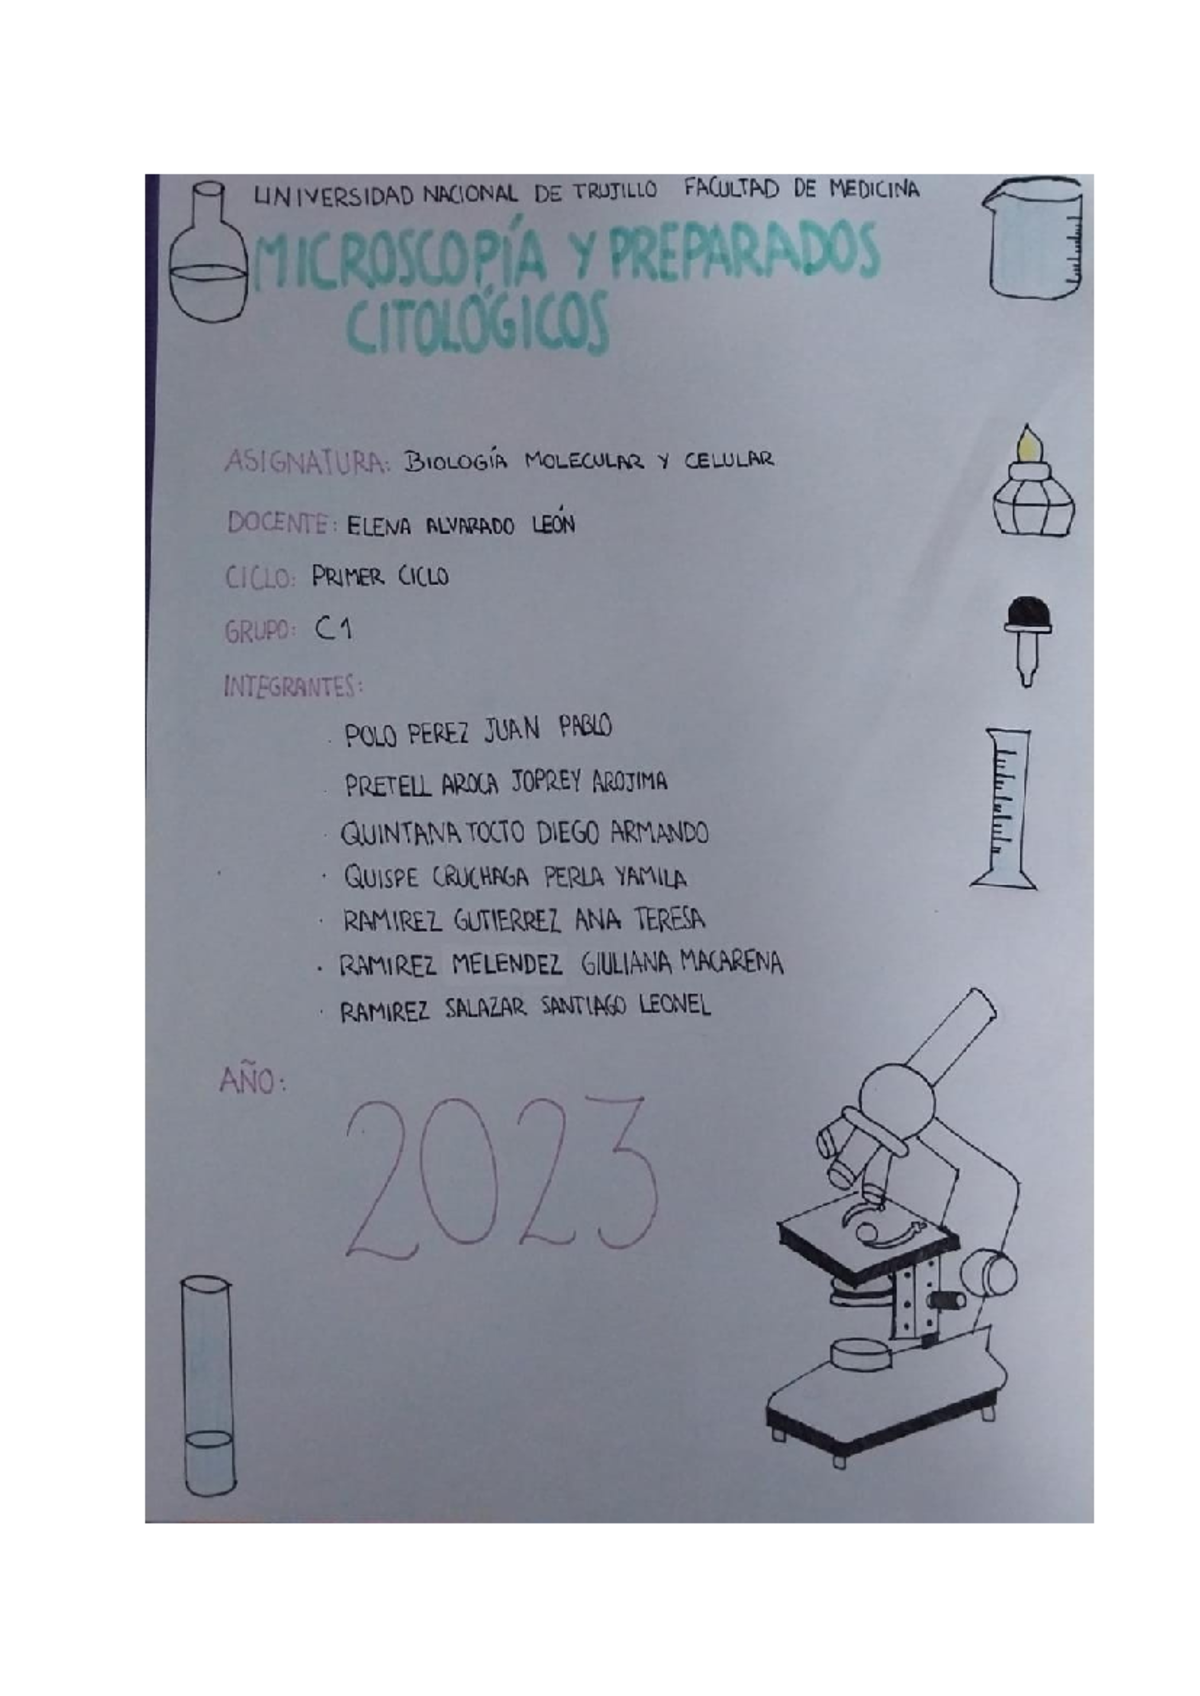 UNIVERSIDAD NACIONAL DE TRUJILLO FACULTAD DE MEDICINA
MICROSCOPÍA Y PREPARADOS
CITOLÓGICOS
ASIGNATURA: BIOLOGÍA MOLECULAR Y CELULAR
DOCENTE: ELENA ALVARADO LEÓN
CICLO: PRIMER CICLO
GRUPO: C1
INTEGRANTES:
· POLO PEREZ JUAN PABLO
· PRETELL AROCA JOPREY AROJIMA
· QUINTANA TOCTO DIEGO ARMANDO
· QUISPE CRUCHAGA PERLA YAMILA
· RAMIREZ GUTIERREZ ANA TERESA
· RAMIREZ MELENDEZ GIULIANA MACARENA
· RAMIREZ SALAZAR SANTIAGO LEONEL
AÑO:
2023